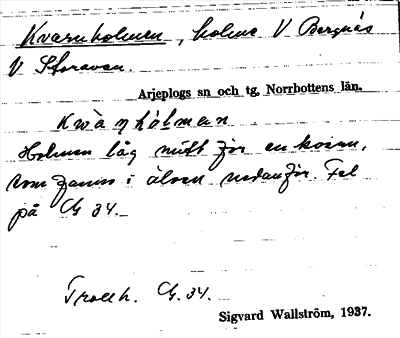 Kvarnholmen, holme V Bergnäs
V Storavan.
Arjeplogs sn och tg, Norrbottens län.
Kwàṇhólmen
Holmen låg mitt för en kvarn,
som fanns i älven nedanför. Fel
på G 34.
Trollh. G. 34.
Sigvard Wallström, 1937.